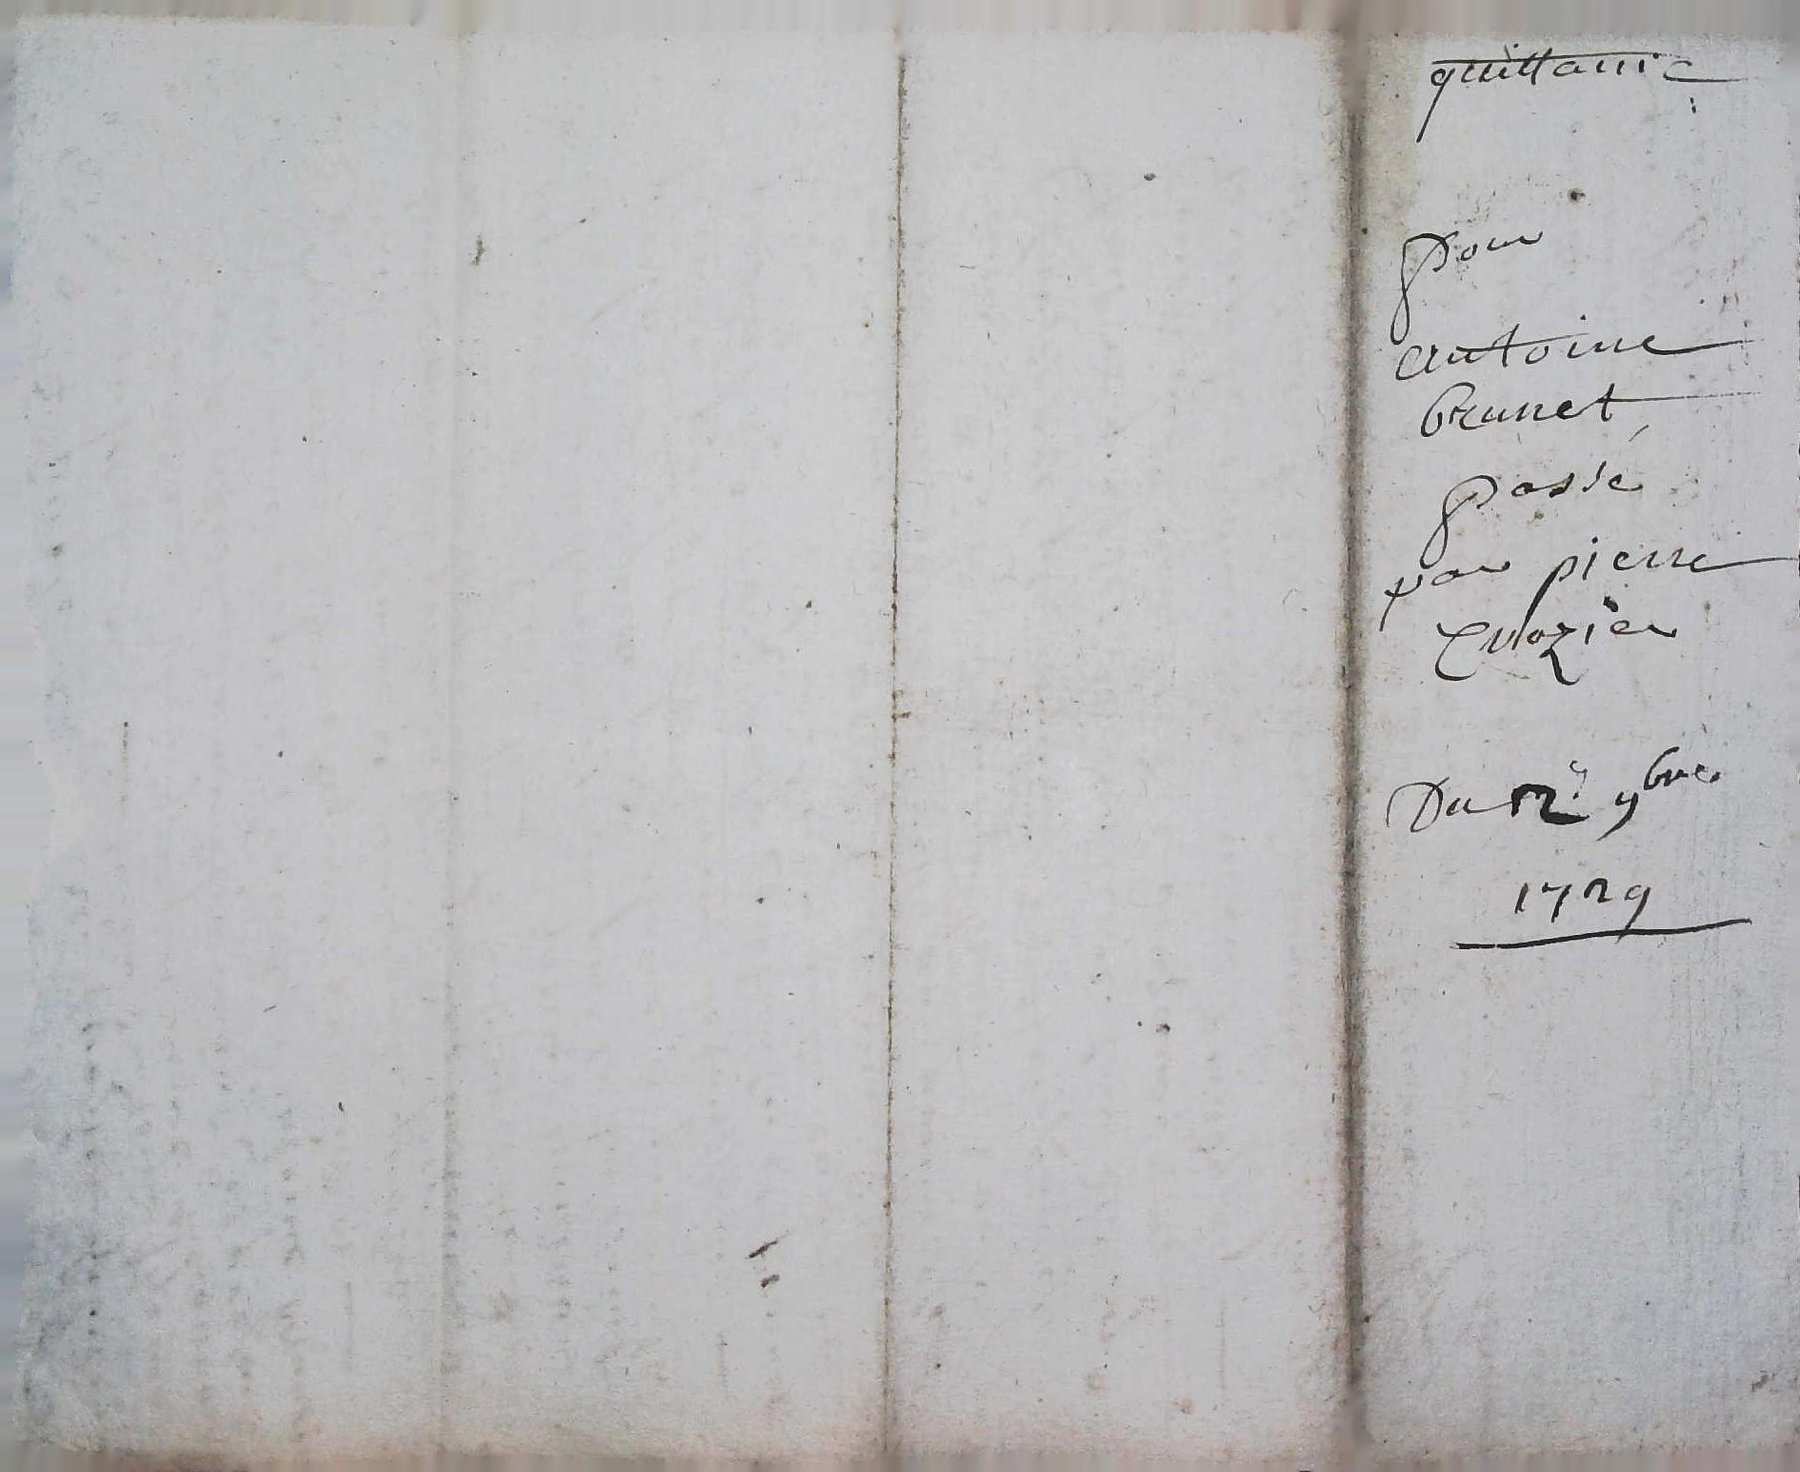 quittance
pour
antoine
brunet
passé
par pierre
Du 12e 9bre
1729